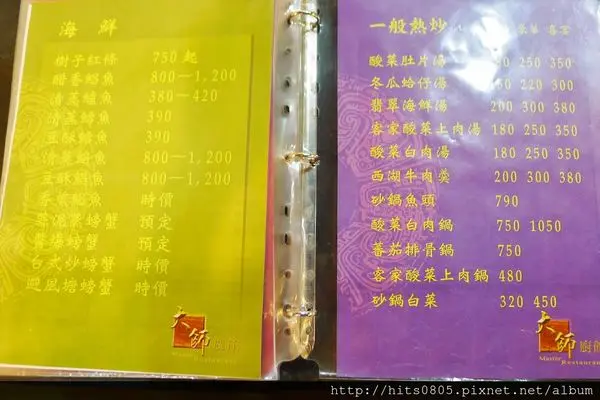 海鮮
樹子紅條 750起
醋香鯧魚 800－1,200
清蒸鱸魚 380－420
清蒸鱈魚 390
豆酥鱈魚 390
清蒸鯧魚 800－1,200
豆酥鯧魚 800－1,200
魚 時價
螃蟹 預定
螃蟹 預定
台式炒螃蟹 時價
避風塘螃蟹 時價
大師
Master
Restaurant
一般熱炒
酸菜肚片湯 180 250 350
冬瓜蛤仔湯 220 300
翡翠海鮮湯 200 300 380
客家酸菜上肉湯 180 250 350
酸菜白肉湯 180 250 350
西湖牛肉羹 200 300 380
砂鍋魚頭 790
酸菜白肉鍋 750 1050
蕃茄排骨鍋 750
客家酸菜上肉鍋 480
砂鍋白菜 320 450
大師廚房
Master
Restaurant
http://hits0805.pixnet.net/album